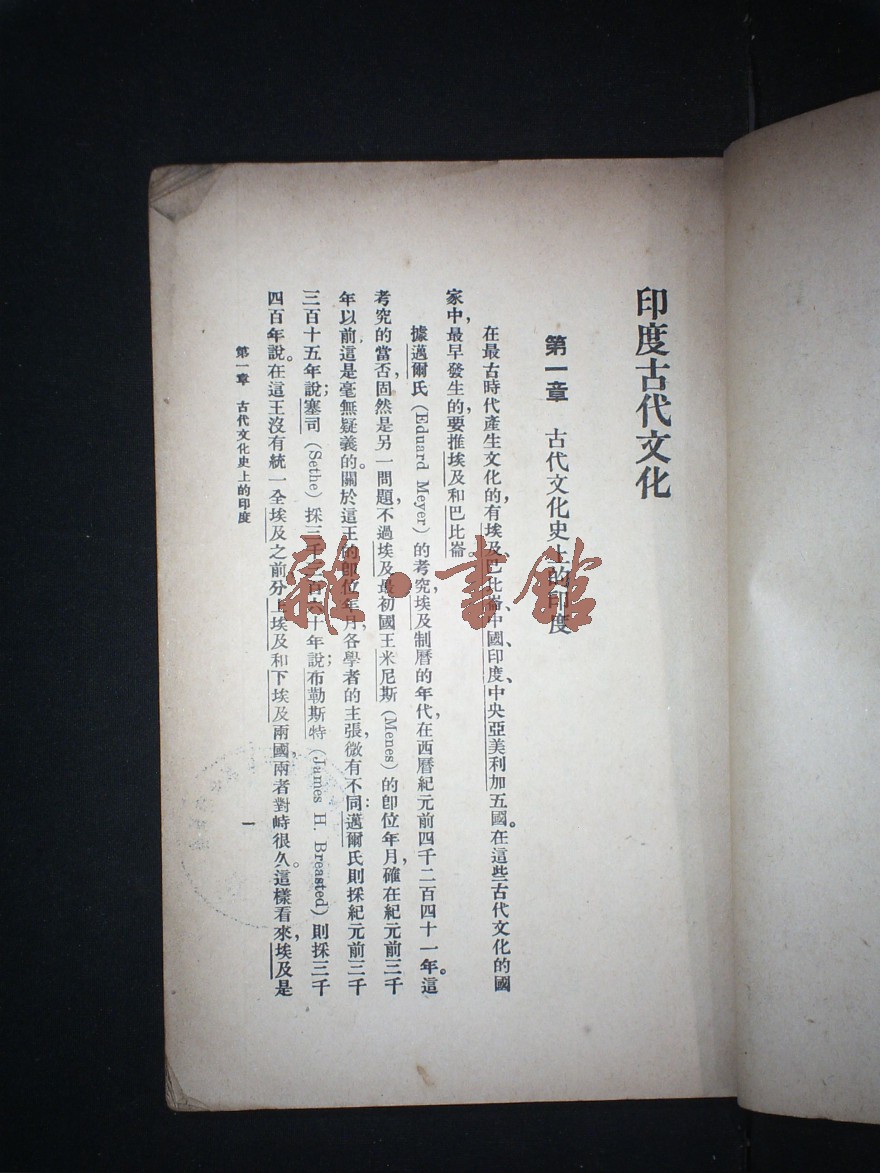 印度古代文化
第一章　古代文化史上的印度
在最古時代產生文化的,有埃及、巴比崙、中國、印度、中央亞美利加五國。在這些古代文化的國
家中,最早發生的,要推埃及和巴比崙。
據邁爾氏(Eduard Meyer)的考究,埃及制曆的年代,在西曆紀元前四千二百四十一年。這
考究的當否,固然是另一問題,不過埃及最初國王米尼斯(Menes)的卽位年月,確在紀元前三千
年以前,這是毫無疑義的。關於這王的卽位年月,各學者的主張,微有不同:邁爾氏則採紀元前三千
三百十五年說;塞司(Sethe)採三千三百六十年說;布勒斯特(James H. Breasted)則採三千
四百年說。在這王沒有統一全埃及之前,分上埃及和下埃及兩國,兩者對峙很久。這樣看來,埃及是
第一章　古代文化史上的印度
一
雜·書館